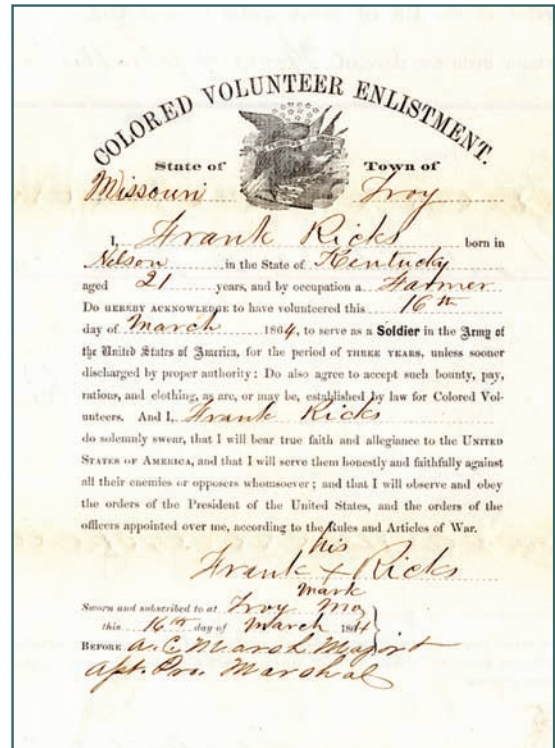 COLORED VOLUNTEER ENLISTMENT.
State of Town of
Missouri Troy
I, Frank Ricks born in
Nelson in the State of Kentucky
aged 21 years, and by occupation a Farmer
Do HEREBY ACKNOWLEDGE to have volunteered this 16th
day of March 1864, to serve as a Soldier in the Army of
the United States of America, for the period of THREE YEARS, unless sooner
discharged by proper authority: Do also agree to accept such bounty, pay,
rations, and clothing, as are, or may be, established by law for Colored Vol-
unteers. And I, Frank Ricks
do solemnly swear, that I will bear true faith and allegiance to the UNITED
STATES OF AMERICA, and that I will serve them honestly and faithfully against
all their enemies or opposers whomsoever; and that I will observe and obey
the orders of the President of the United States, and the orders of the
officers appointed over me, according to the Rules and Articles of War.
his
Frank X Ricks
mark
Sworn and subscribed to at Troy Mo
this 16th day of March 1864
BEFORE A. C. Marsh Major &
Apt. Pro. Marshal